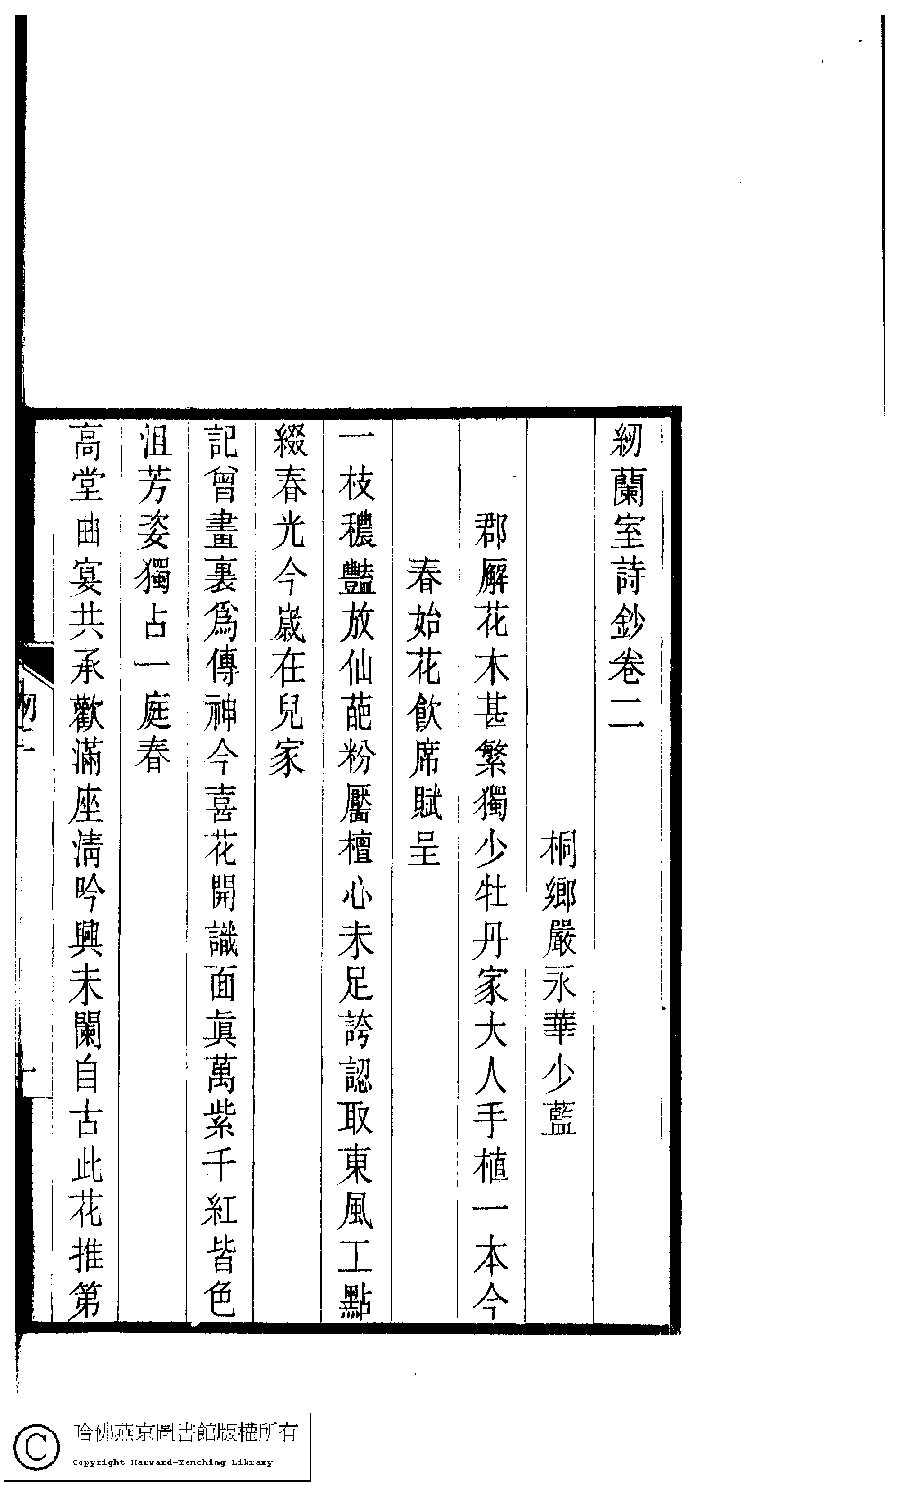 紉蘭室詩鈔卷二
桐鄉嚴永華少藍
郡廨花木甚繁獨少牡丹家大人手植一本今
春始花飲席賦呈
一枝穠豔放仙葩粉靨檀心未足誇認取東風工點
綴春光今歲在兒家
記曾畫裏爲傳神今喜花開識面眞萬紫千紅皆色
沮芳姿獨占一庭春
高堂曲宴共承歡滿座清吟興未闌自古此花推第
哈佛燕京圖書館版權所有
Copyright Harvard-Yenching Library